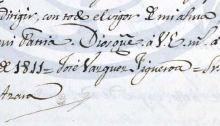 dirigir, con todo el vigor de mi alma
mi Patria Dios gūe á V.E. m.s a
de 1811 = José Vazquez Figueroa =
Azara